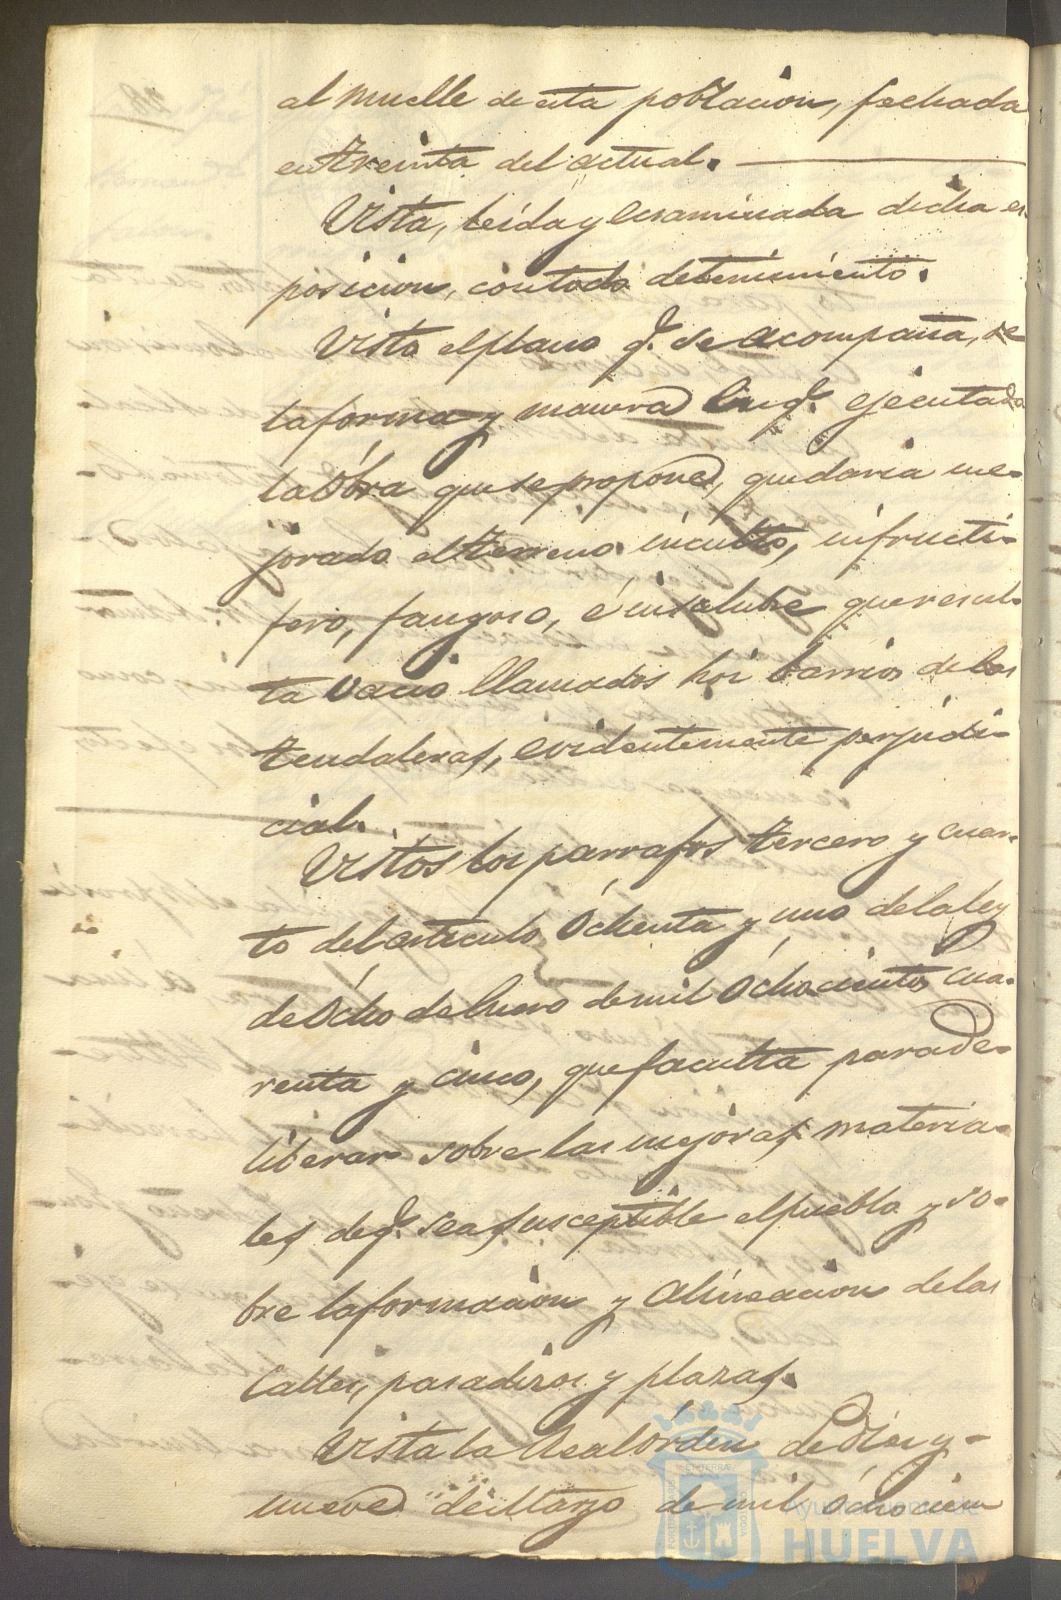 al muelle de esta poblacion, fechada
en treinta del actual.
Vista, leida y ecsaminada dicha es-
posicion, con todo detenimiento.
Visto el plano q.e se acompaña, de
la forma y manera en q.e ejecutada
la Obra que se propone, quedaria me-
jorado el terreno inculto, infructi-
fero, fangoso, é insalubre que resul-
ta vacio llamados hoi barrios de las
tendaleras, evidentemente perjudi-
cial.
Vistos los parrafos tercero y cuar-
to del articulo Ochenta y uno de la ley
de Ocho de Enero de mil Ochocientos cua-
renta y cinco, que faculta para de-
liberar sobre las mejoras materia-
les de q.e sea suceptible el pueblo y so-
bre la formacion y alineacion de las
Calles, pasadizos y plazas.
Vista la Real Orden de Diez y-
nueve de Marzo de mil Ochocien
Ayuntamiento de
HUELVA